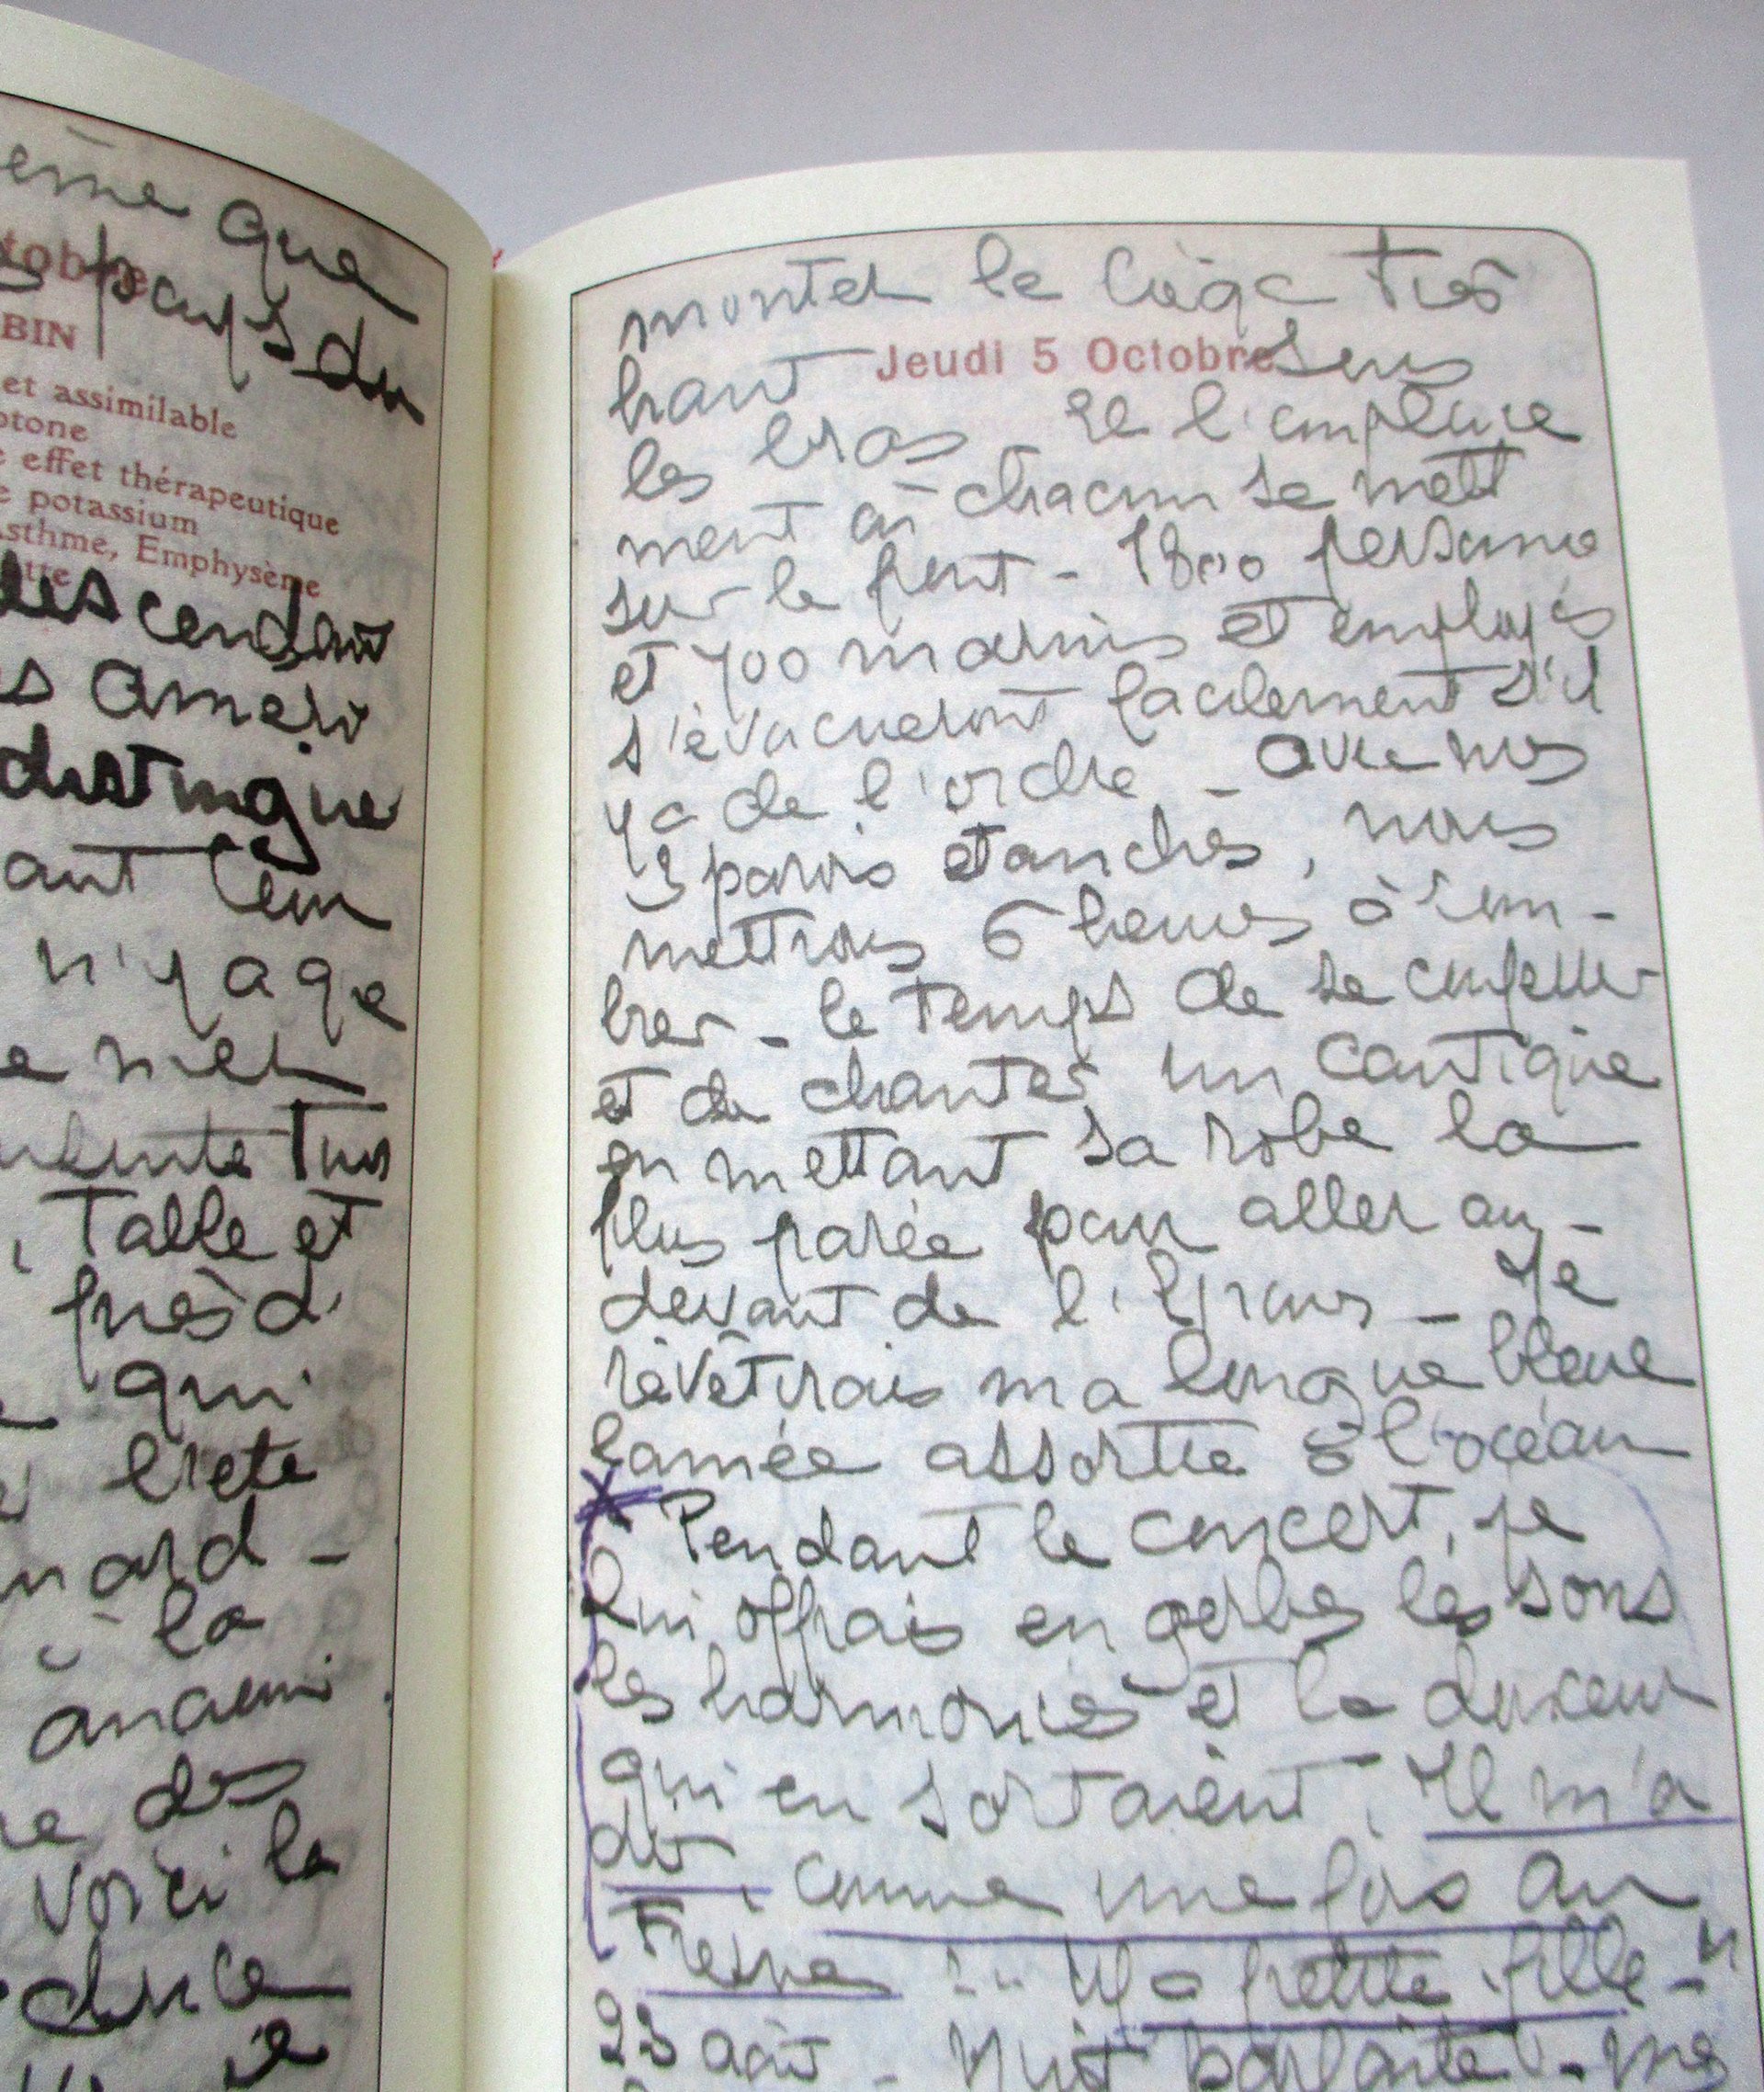 ême que
tobre
s pays du
BIN
et assimilable
ptone
e effet thérapeutique
e potassium
Asthme, Emphysème
tte
descendant
s ameri
distingue
ant l'em
n'y a que
e mer
Table et
près d'
qui
crete
nard -
à la
des
voici la
duce
monter le liège très
Jeudi 5 Octobre
haut sous
les bras. Et l'emplace
ment où chacun se mett
sur le pont - 1800 personne
et 700 marins et employés
s'évacueront facilement s'il
y a de l'ordre - avec nos
3 parois etanches, nous
mettrons 6 heures à som -
brer - le temps de se
et de chanter un cantique
en mettant sa robe la
plus parée pour aller au -
devant de l'Epoux - Je
révêtirais ma longue bleue
lamée assortie à l'océan
x Pendant le concert, je
lui offrais en gerbes les sons
les harmonies et la douceur
qui en sortaient. Il m'a
dit, comme une fois au
Fresne "Ma petite fille - "
23 août - Nuit parfaite - mes